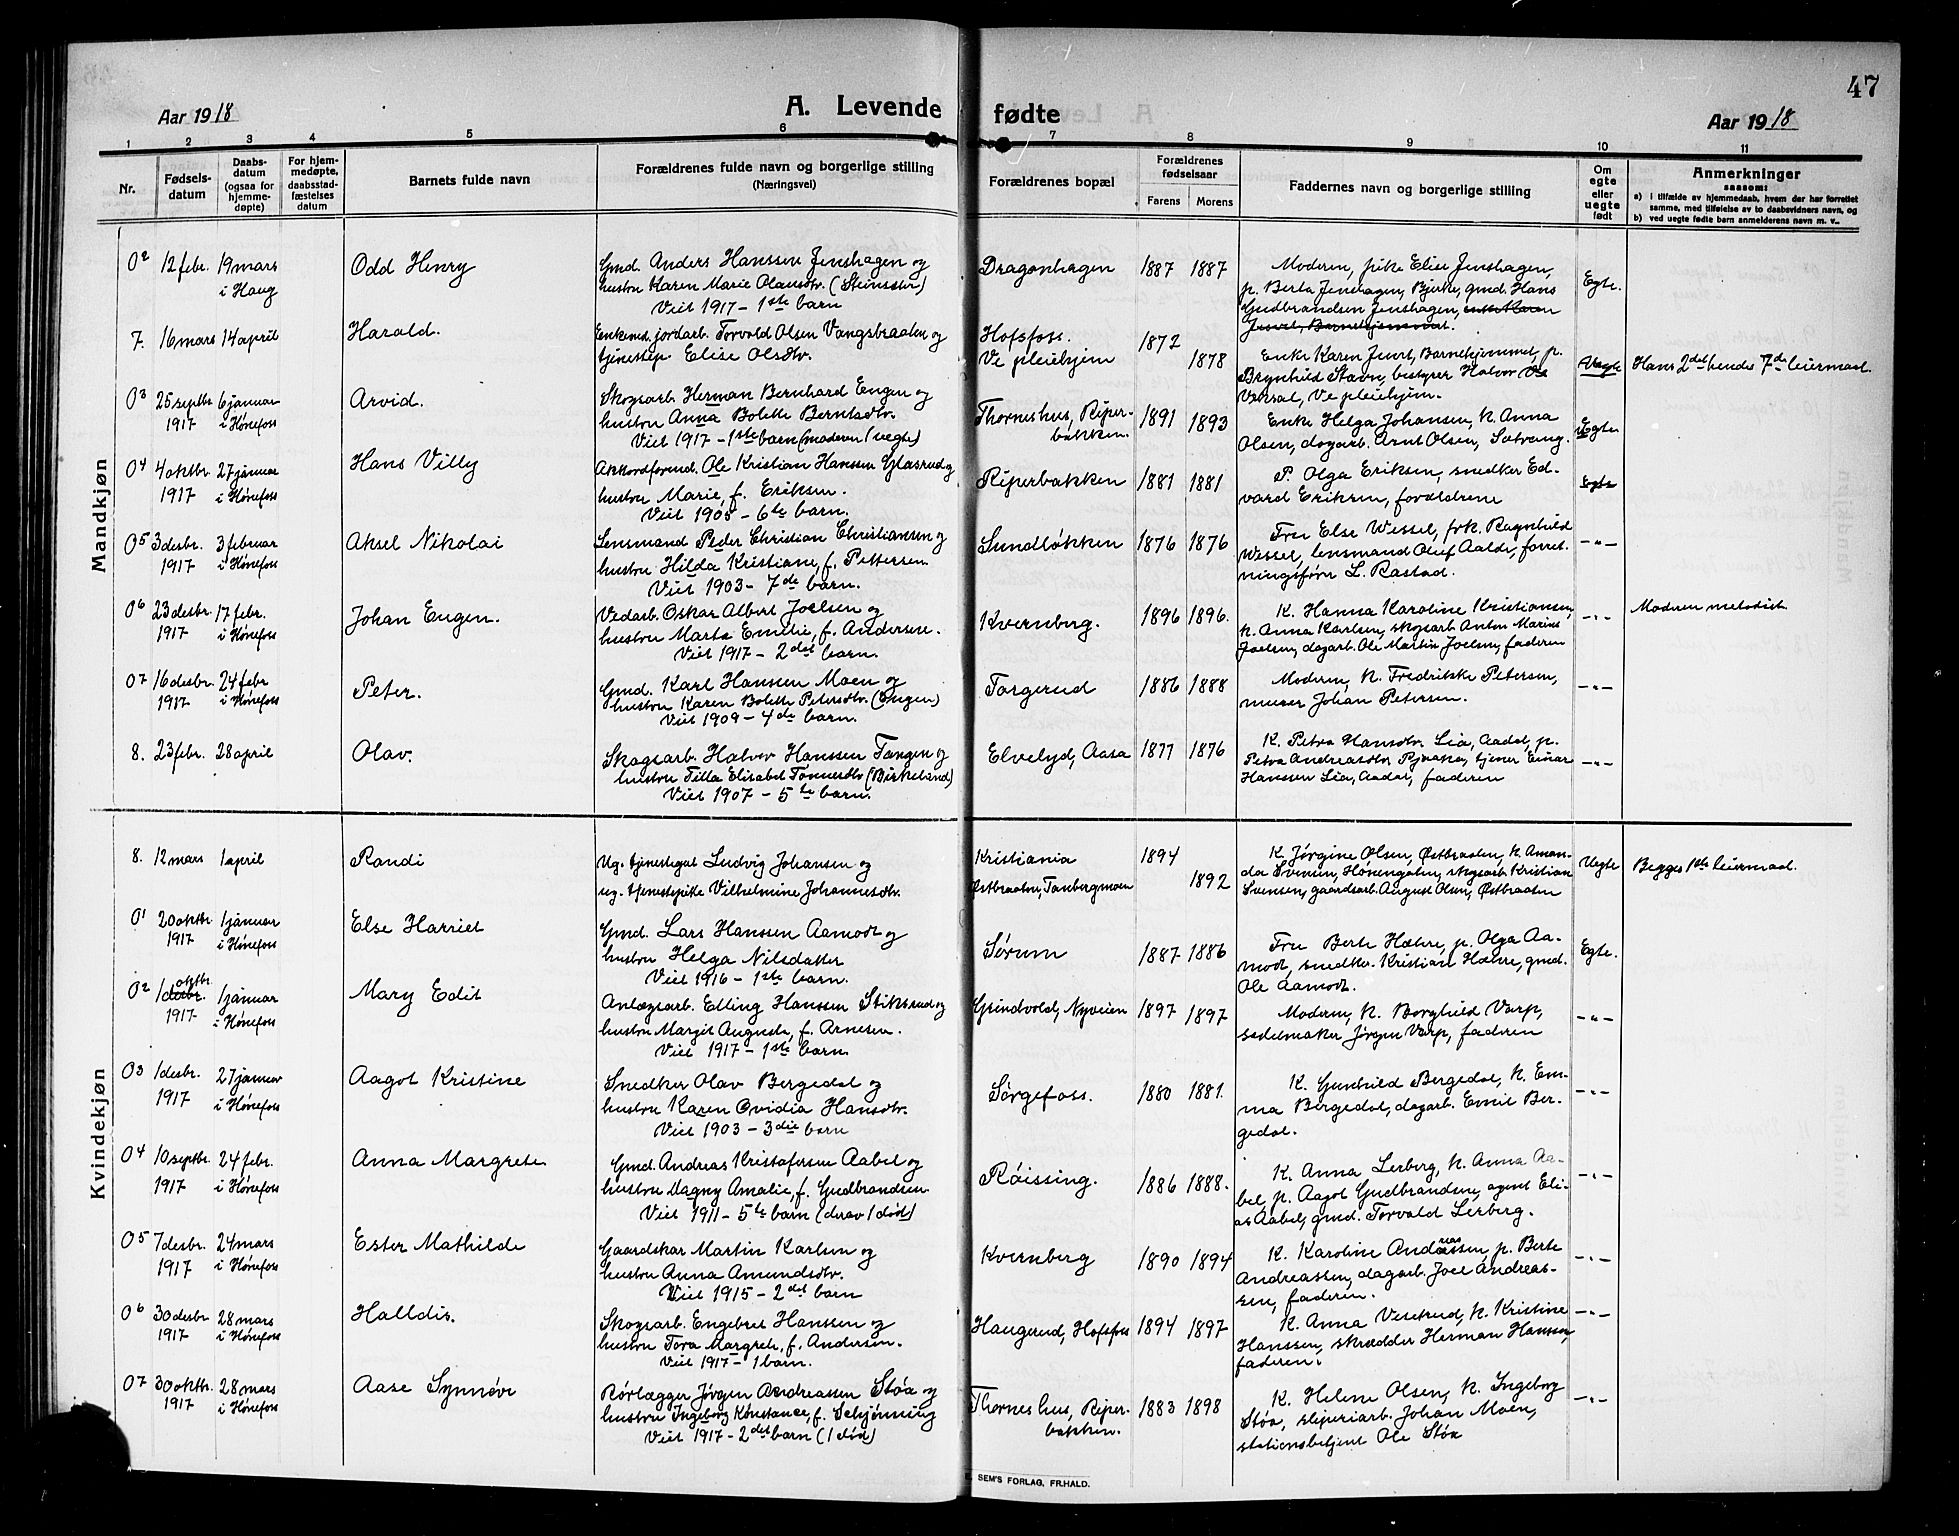 47
Aar 1918
A. Levende fødte
Aar 1918
1 2 3 4 5 6 7 8 9 10 11
Nr.
Fødsels-
datum
Daabs-
datum
(ogsaa for
hjemme-
døpte)
For hjem-
medøpte,
daabsstad-
fæstelses
datum
Barnets fulde navn
Forældrenes fulde navn og borgerlige stilling
(Næringsvei)
Forældrenes bopæl
Forældrenes
fødselsaar
Farens Morens
Faddernes navn og borgerlige stilling
Om
egte
eller
uegte
født
Anmerkninger
saasom:
a) i tilfælde av hjemmedaab, hvem der har forrettet
samme, med tilføielse av to daabsvidners navn, og
b) ved uegte fødte barn anmelderens navn m. v..
Mandkjøn
02 12 febr. 19 mars
i Haug
Odd Henry
Gmd. Anders Hanssen Jenshagen og
hustru Karen Marie Olausdtr. (Steinsetr)
Viet 1917 - 1ste barn
Dragonhagen 1887 1887
Moderen, pike Elise Jenshagen,
p. Berta Jenshagen, Bjerke, gmd. Hans
Gudbrandsen Jenshagen,
Egte.
7. 16 mars 14 april
Harald.
Enkem. jordarb. Torvald Olsen Vangsbraaten og
tjenestep. Elise Olsdtr.
Hofsfoss.
Ve pleiehjem
1872 1878
Enke Karen Juvet, Barnehjemmet, p.
Brynhild Stavn, bestyrer Halvor
Versal, Ve pleiehjem.
Uegte
Hans 2det hendes 7de leiermaal.
03 25 septbr 6 januar
1917 i Hønefoss
Arvid.
Skogsarb. Herman Bernhard Engen og
hustru Anna Bolette Berntsdtr.
Viet 1917 - 1ste barn (moderen uegte)
Thorneshus, Riper-
bakken.
1891 1893
Enke Helga Johansen, k. Anna
Olsen, dagarb. Arnt Olsen, Sætrang.
Egte
04 4 oktbr. 27 januar
1917 i Hønefoss
Hans Villy
Akkordformd. Ole Kristian Hanssen Glasrud og
hustru Marie, f. Eriksen.
Viet 1905 - 6te barn.
Riperbakken 1881 1881
P. Olga Eriksen, snedker Ed-
vard Eriksen, forældrene
Egte
05 3 desbr. 3 februar
1917 i Hønefoss
Aksel Nikolai
Lensmand Peder Christian Christiansen og
hustru Hilda Kristiane, f. Pettersen
Viet 1903 - 7de barn.
Sundløkken 1876 1876
Fru Else Wessel, frk. Ragnhild
Wessel, lensmand Oluf Aalde, forret-
ningsfører L. Rastad.
-"-
06 23 desbr. 17 febr.
1917 i Hønefoss
Johan Eugen.
Vedarb. Oskar Albert Joelsen og
hustru Marta Emilie, f. Andersen.
Viet 1917 - 2det barn.
Kvernberg. 1896 1896.
K. Hanna Karoline Kristiansen,
k. Anna Karlsen, skogsarb. Anton Marius
Joelsen, dagarb. Ole Martin Joelsen, faderen
-"-
Moderen metodist.
07 16 desbr. 24 febr
1917 i Hønefoss
Peter.
Gmd. Karl Hanssen Moen og
hustru Karen Bolette Petersdtr. (Engen)
Viet 1909 - 4de barn.
Torgerud 1886 1888
Moderen, k. Fredrikke Petersen,
murer Johan Petersen.
-"-
8. 23 febr. 28 april
Olav.
Skogsarb. Halvor Hanssen Tangen og
hustru Tilla Elisabet Tønnesdtr (Birkelund)
Viet 1907 - 5te barn.
Elvelyd, Aasa 1877 1876
K. Petra Hansdtr. Lia, Aadal, p.
Petra Andreasdtr. Pjaaka, tjener Einar
Hanssen Lia, Aadal, faderen
-"-
Kvindekjøn
8. 12 mars 1 april
Randi
Ug. tjenestegut Ludvig Johansen og
ug. tjenestepike Vilhelmine Johannesdtr.
Kristiania
Østbraaten, Tanbergmoen
1894 1892
K. Jørgine Olsen, Østbraaten, k. Aman-
da Svensen, Hønengaten, skogsarb. Kristian
Svensen, gaardsarb. August Olsen, Østbraaten
Uegte
Begges 1ste leiermaal.
01 20 oktbr. 1 januar
1917 i Hønefoss
Else Harriet
Gmd. Lars Hansen Aamodt og
hustru Helga Nilsdatter
Viet 1916 - 1ste barn.
Sørum 1887 1886
Fru Berte Hæhre, p. Olga Aa-
modt, snedker. Kristian Hæhre, gmd.
Ole Aamodt.
Egte.
02 oktbr.
1 desbr. 1 januar
1917 i Hønefoss
Mary Edit
Anlægsarb. Elling Hansen Stiksrud og
hustru Margit Auguste, f. Arnesen.
Viet 1917 - 1ste barn.
Grindvold, Nyveien 1897 1897
Moderen, k. Borghild Varp,
sadelmaker Jørgen Varp, faderen
-"-
03 1 desbr. 27 januar
1917 i Hønefoss
Aagot Kristine
Snedker Olav Bergedal og
hustru Karen Ovidia Hansdtr.
Viet 1903 - 3die barn
Sørgefoss. 1880 1881.
K. Gunhild Bergedal, k. Em-
ma Bergedal, dagarb. Emil Ber-
gedal.
-"-
04 10 septbr. 24 febr.
1917 i Hønefoss
Anna Margrete
Gmd. Andreas Kristofersen Aabel og
hustru Dagny Amalie, f. Gudbrandsen
Viet 1911 - 5te barn (derav 1 død)
Røissing. 1886 1888.
K. Anna Lerberg, k. Anna Aa-
bel, p. Aagot Gudbrandsen, agent Eli-
as Aabel, gmd. Torvald Lerberg.
-"-
05 7 desbr. 24 mars
1917 i Hønefoss
Ester Mathilde
Gaardskar Martin Karlsen og
hustru Anna Amundsdtr.
Viet 1915 - 2det barn
Kvernberg 1890 1894
K. Karoline Andreassen, p. Berte
Andreassen, dagarb. Joel Andreas-
sen, faderen.
-"-
06 30 desbr. 28 mars
1917 i Hønefoss
Halldis.
Skogsarb. Engebret Hanssen og
hustru Tora Margrete, f. Andersen.
Viet 1917 - 1 barn.
Haugerud, Hofsfoss 1894 1897
K. Anna Viserud, k. Kristine
Hanssen, skrædder Herman Hansen,
faderen.
-"-
07 30 oktbr. 28 mars
1917 i Hønefoss
Aase Synnøve
Rørlægger Jørgen Andreassen Støa og
hustru Ingeborg Konstance, f. Schjønning
Viet 1917 - 2det barn (1 død)
Thorneshus, Riper-
bakken.
1883 1898
K. Helene Olsen, k. Ingeborg
Støa, sliperiarb. Johan Moen,
stationsbetjent Ole Støa
-"-
SEM'S FORLAG, FR.HALD.